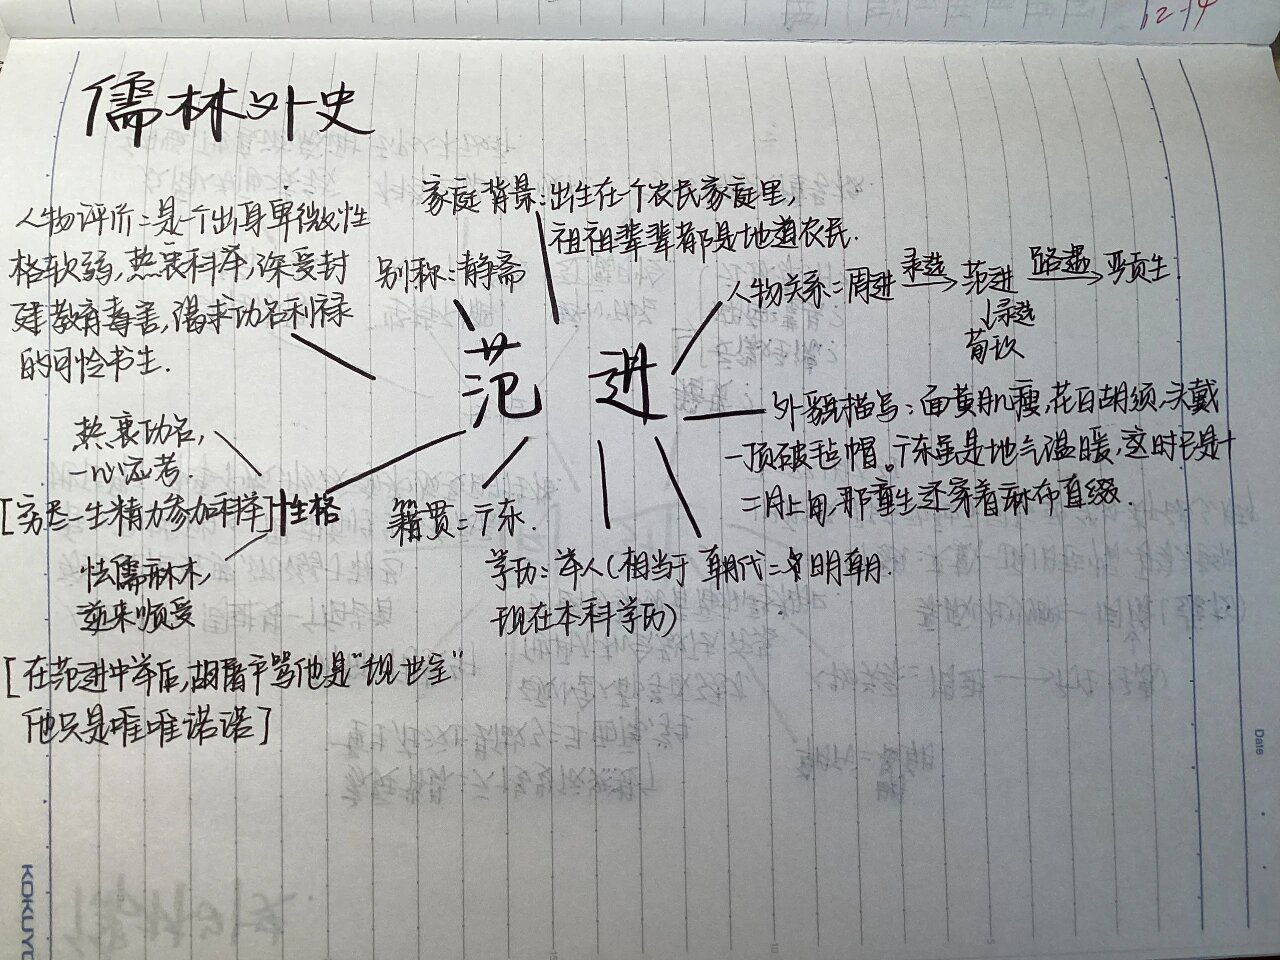 12-14
儒林外史
家庭背景:出生在一个农民家庭里,
祖祖辈辈都是地道农民.
人物评价:是一个出身卑微,性
格软弱,热衷科举,深受封
建教育毒害,渴求功名利禄
的可怜书生.
别称:静斋
人物关系:周进 录选 范进 路遇 严贡生
录选
荀玫
范进
外貌描写:面黄肌瘦,花白胡须,头戴
一顶破毡帽。广东虽是地气温暖,这时已是十
二月上旬,那童生还穿着麻布直缀.
热衷功名,
一心应考.
[穷尽一生精力参加科举]
性格
怯懦麻木,
逆来顺受
[在范进中举后,胡屠户骂他是"现世宝"
他只是唯唯诺诺]
籍贯:广东.
学历:举人(相当于
现在本科学历)
朝代:明朝.
Date
KOKUYO